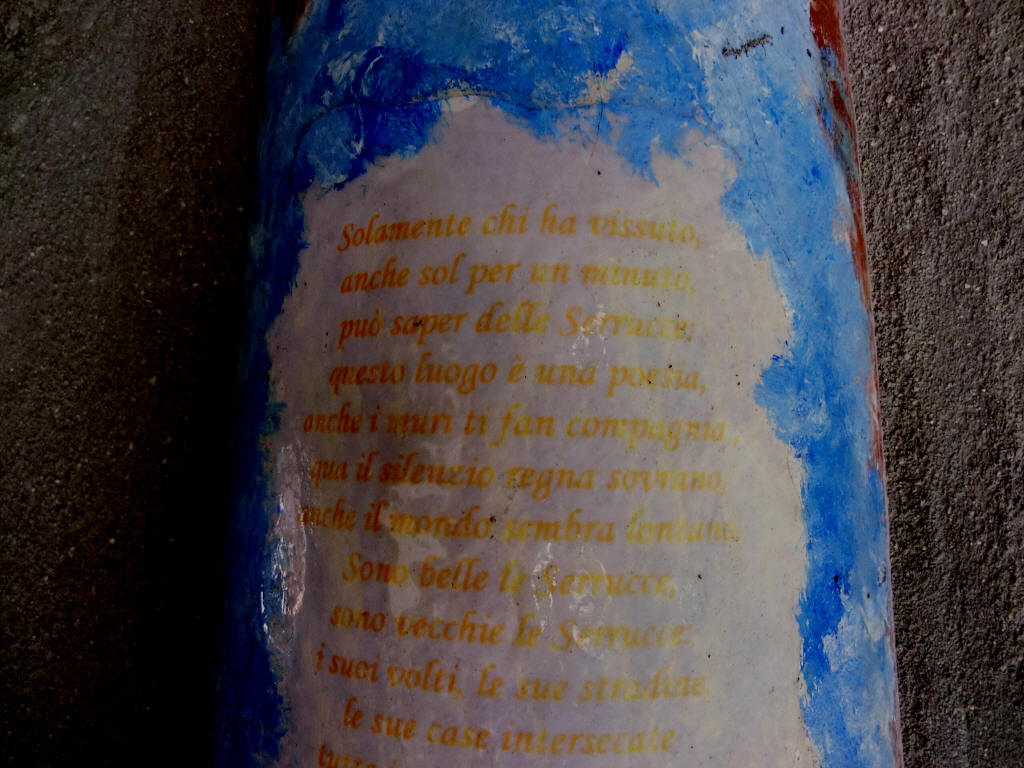 Solamente chi ha vissuto,
anche sol per un minuto,
può saper delle Serrucce;
questo luogo è una poesia,
anche i muri ti fan compagnia,
qua il silenzio regna sovrano,
anche il mondo sembra lontano.
Sono belle le Serrucce,
sono vecchie le Serrucce:
i suoi volti, le sue stradine,
le sue case intersecate